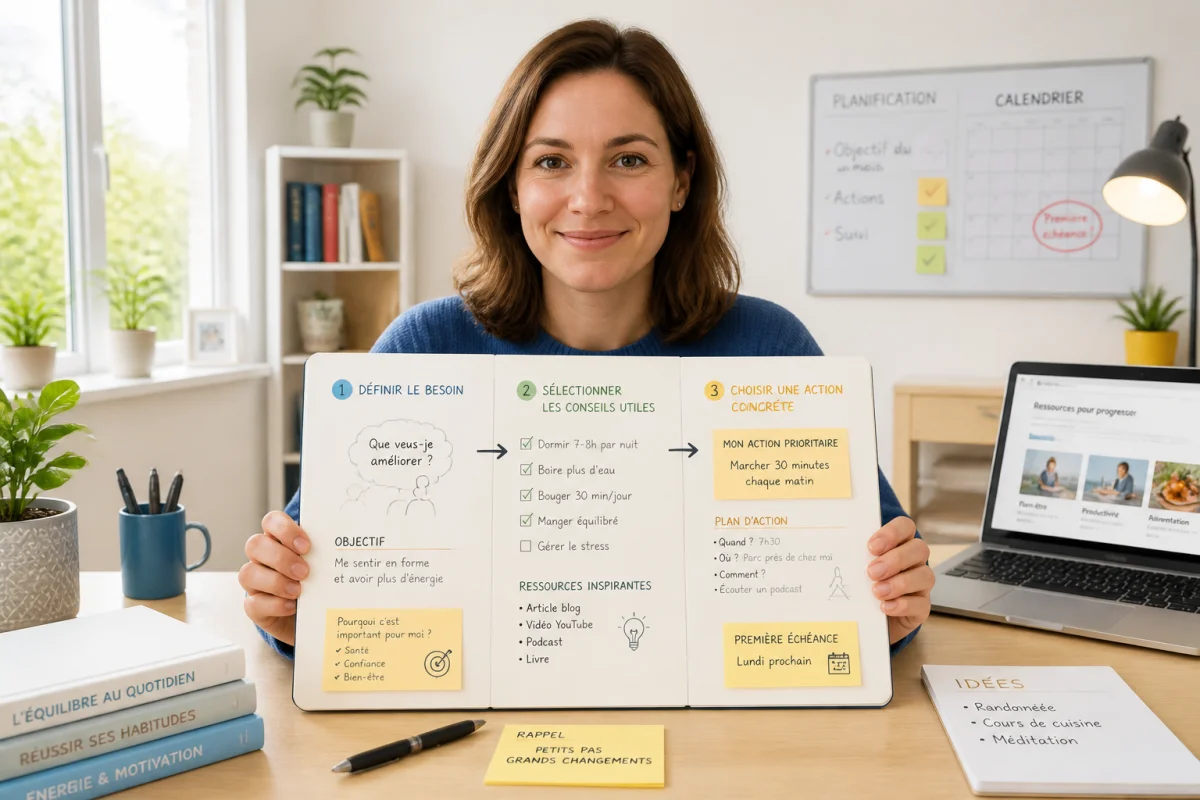 PLANIFICATION
• Objectif du
Actions
Suivi
CALENDRIER
Première
échéance
1 DÉFINIR LE BESOIN
Que veus-je
améliorer ?
OBJECTIF
Me sentir en forme
et avoir plus d'énergie
Pourqioi c'est
important pour moi ?
✔ Santé
✔ Confiance
✔ Bien-être
2 SÉLECTIONNER
LES CONSEILS UTILES
☑ Dormir 7-8h par nuit
☑ Boire plus d'eau
☑ Bouger 30 min/jour
☑ Manger équilibré
☐ Gérer le stress
RESSOURCES INSPIRANTES
• Article blog
• Vidéo YouTube
• Podcast
• Livre
3 CHOISIR UNE ACTION
CONCRÉTE
MON ACTION PRIORITAIRE
Marcher 30 minutes
chaque matin
PLAN D'ACTION
• Quand ? 7h30
• Où ? Parc près de chez moi
• Comment ?
• Écouter un podcast
PREMIÈRE ÉCHÉANCE
Lundi prochain
Ressources pour progresser
Productivité
L'ÉQUILIBRE AU QUOTIDIEN
RÉUSSIR SES HABITUDES
ENERGIE & MOTIVATION
RAPPEL
PETITS PAS
GRANDS CHANGEMENTS
IDÉES
• Randoméée
• Cours de cuisine
• Méditation